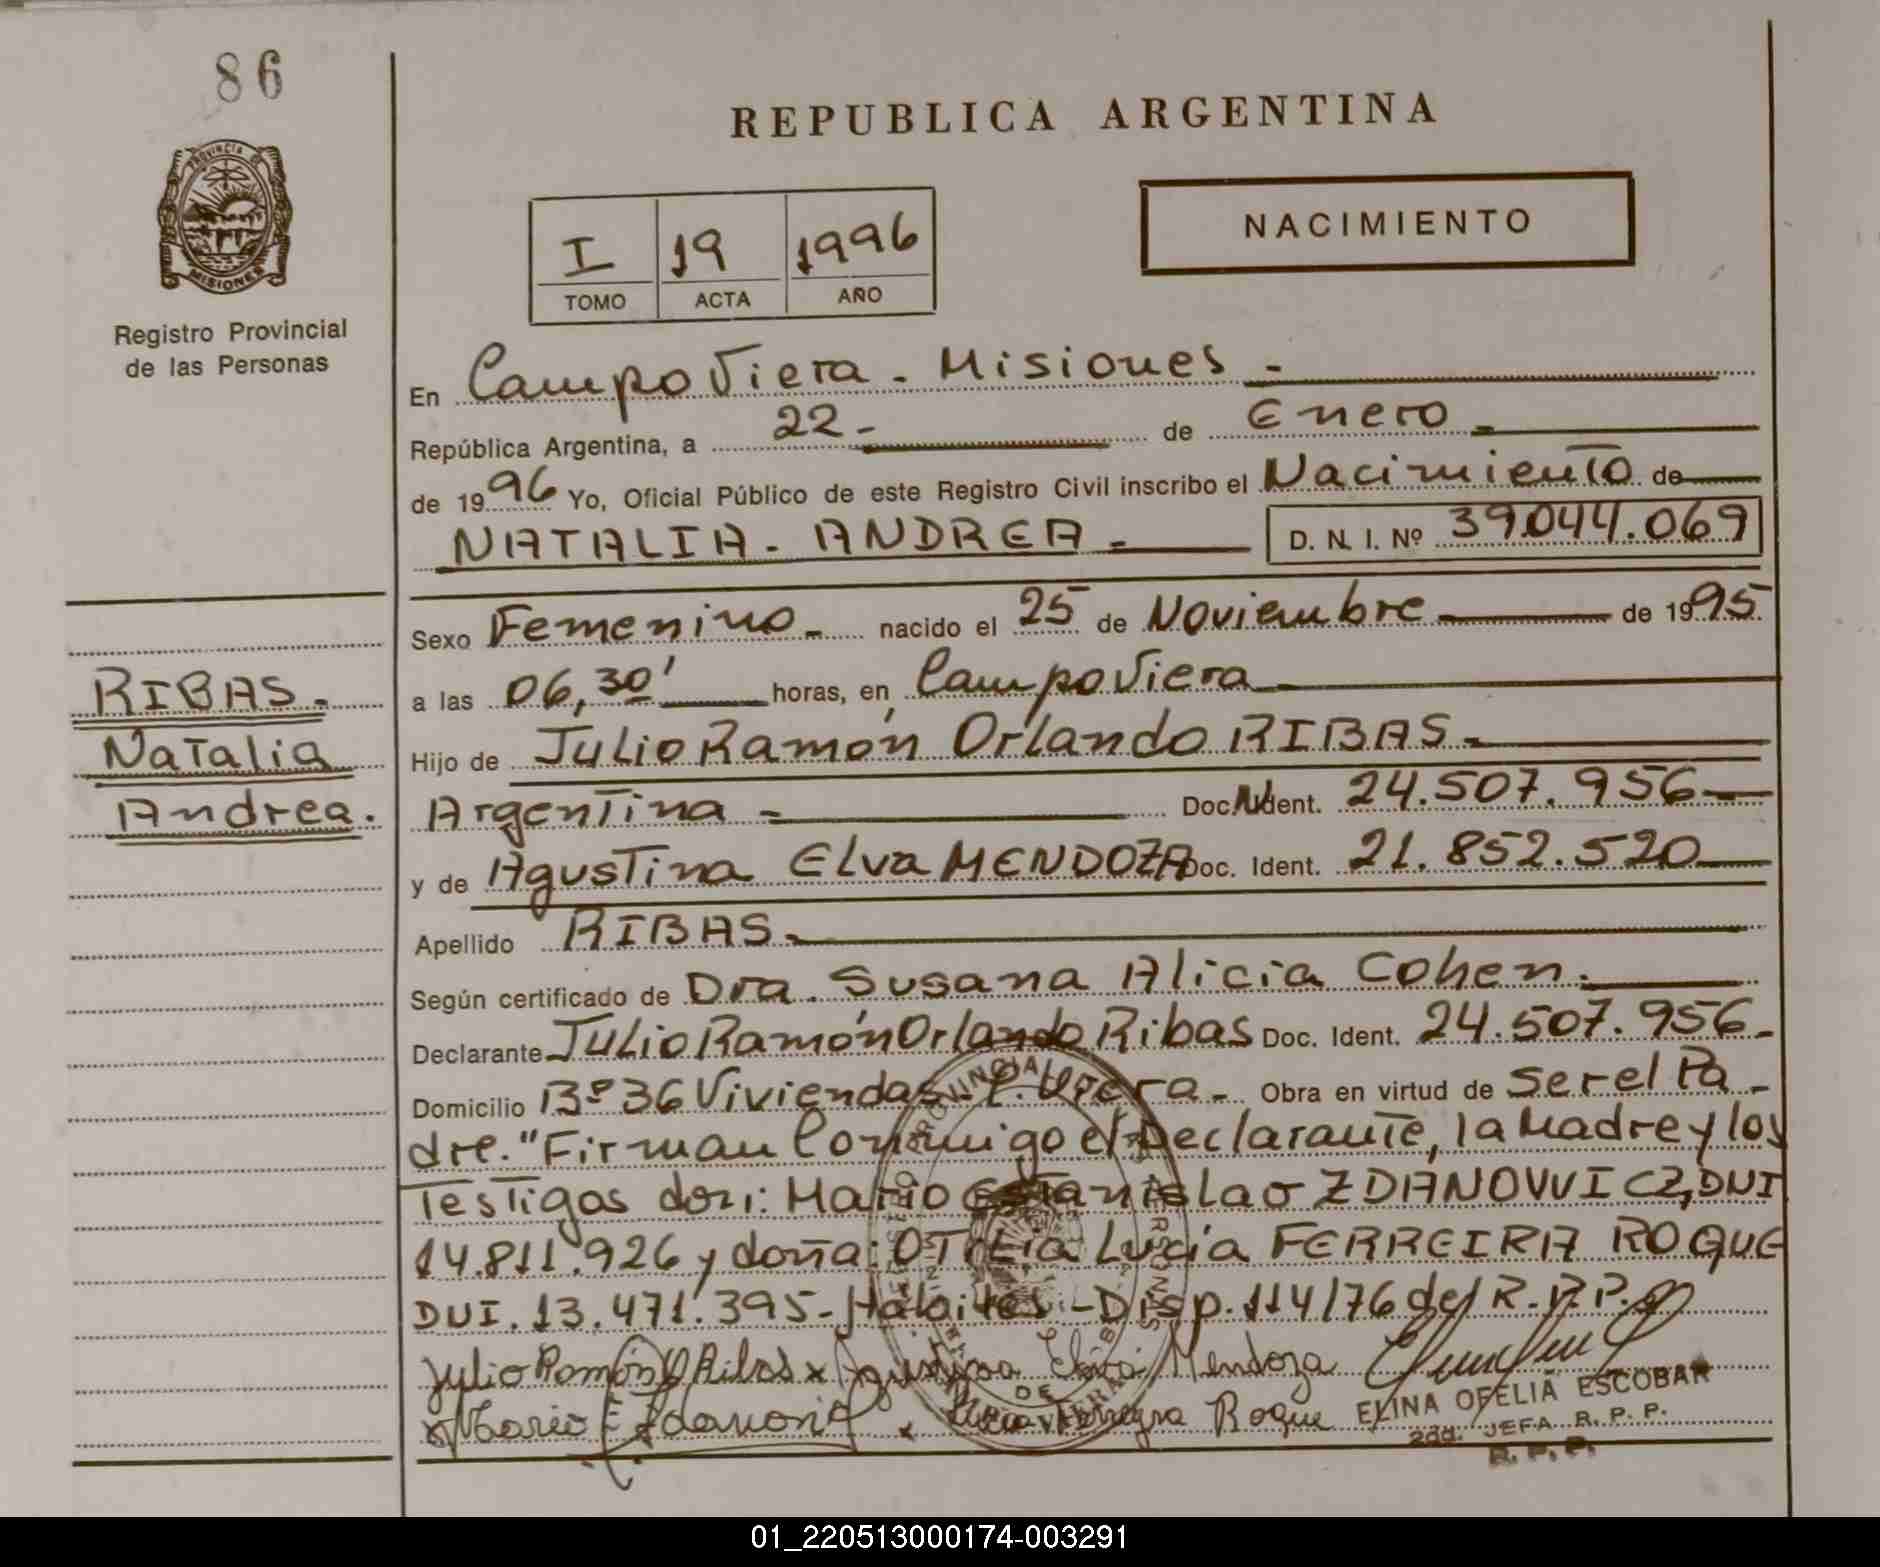 86
PROVINCIA DE
MISIONES
Registro Provincial
de las Personas
RIBAS.
Natalia
Andrea.
REPUBLICA ARGENTINA
I 19 1996
TOMO ACTA AÑO
NACIMIENTO
En Campo Viera - Misiones -
República Argentina, a 22 - de Enero -
de 1996 Yo, Oficial Público de este Registro Civil inscribo el Nacimiento de
NATALIA - ANDREA - D. N. I. Nº 39.044.069
Sexo Femenino - nacido el 25 de Noviembre de 1995
a las 06,30' horas, en Campo Viera
Hijo de Julio Ramón Orlando RIBAS -
Argentina - Doc. Ident. 24.507.956
y de Agustina Elva MENDOZA Doc. Ident. 21.852.520
Apellido RIBAS -
Según certificado de Dra. Susana Alicia Cohen.
Declarante Julio Ramón Orlando Ribas Doc. Ident. 24.507.956 -
Domicilio Bº 36 Viviendas - C. Viera - Obra en virtud de ser el Pa-
dre. "Firman Conmigo el Declarante, la Madre y los
Testigos don: Mario Estanislao ZDANOVVICZ, DNI
14.811.926 y doña: Otilia Lucía FERREIRA ROQUE
DNI. 13.471.395 - Hábiles - Disp. 114/76 del R.P.P.
Julio Ramón O Ribas x Agustina Elva Mendoza
x Mario E x Ferreyra Roque ELINA OFELIA ESCOBAR
2da. JEFA R. P. P.
R. P. P.
01_220513000174-003291